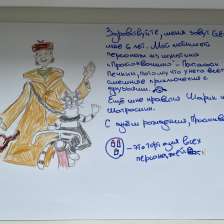 Здравствуйте, меня зовут
мне 6 лет. Мой любимый
персонаж из мультика
«Простоквашино» - Почтальон
Печкин, потому что у него всегда
смешные приключения с
друзьями.
Ещё мне нравится Шарик и
Матроскин.
С днём рождения,
- это торт для всех
персонажей